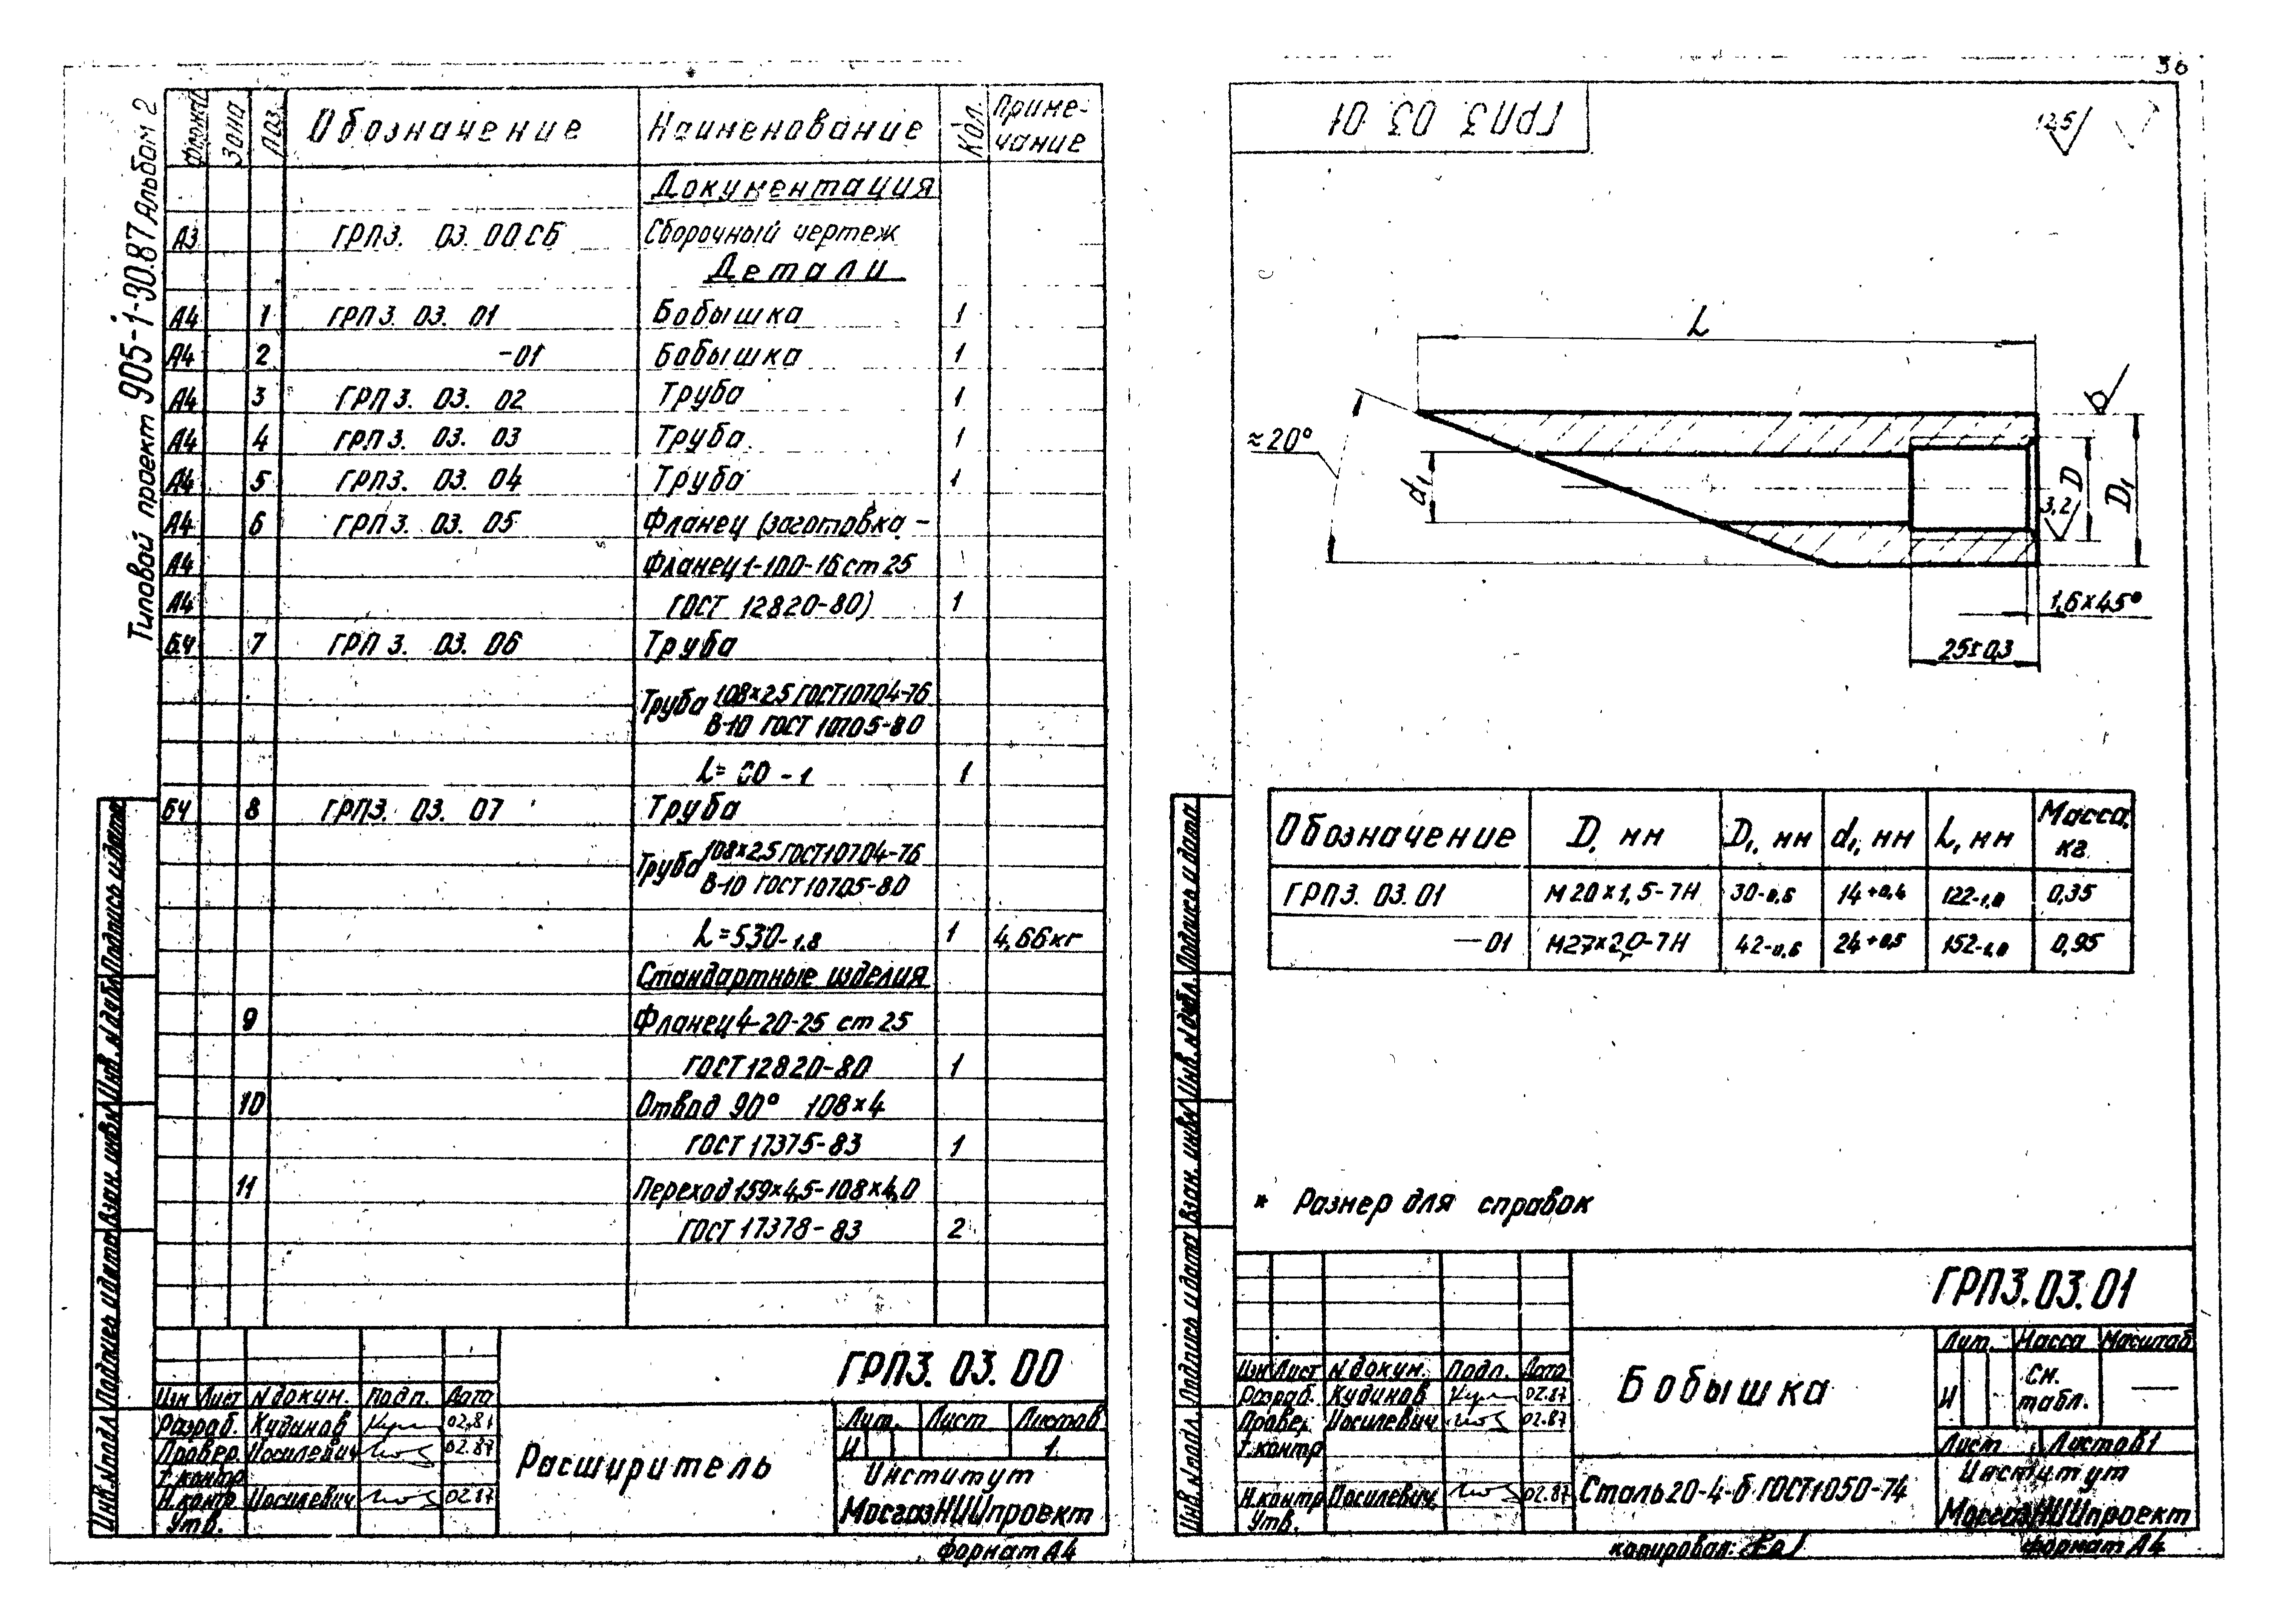 36
Типовой проект 905-1-30.87 Альбом 2
Формат Зона Поз. Обозначение Наименование Кол. Приме-
чание
Документация
А3 ГРП3. 03. 00 СБ Сборочный чертеж
Детали
А4 1 ГРП3. 03. 01 Бобышка 1
А4 2 -01 Бобышка 1
А4 3 ГРП3. 03. 02 Труба 1
А4 4 ГРП3. 03. 03 Труба 1
А4 5 ГРП3. 03. 04 Труба 1
А4 6 ГРП3. 03. 05 Фланец (заготовка -
А4 Фланец 1-100-16 ст 25
А4 ГОСТ 12820-80) 1
БЧ 7 ГРП3. 03. 06 Труба
Труба 108×2,5 ГОСТ 10704-76
В-10 ГОСТ 10705-80
1
БЧ 8 ГРП3. 03. 07 Труба
Труба 108×2,5 ГОСТ 10704-76
В-10 ГОСТ 10705-80
L=530-1,8 1 4,66кг
Стандартные изделия
9 Фланец 4-20-25 ст 25
ГОСТ 12820-80 1
10 Отвод 90° 108×4
ГОСТ 17375-83 1
11 Переход 159×4,5-108×4,0
ГОСТ 17378-83 2
Инв. N подл. Подпись и дата Взам. инв. N Инв. N дубл. Подпись и дата
ГРП3. 03. 00
Изм Лист N докум. Подп. Дата
Разраб. Кудинов 02.87
Провер. Иосилевич 02.87
Т. контр
Н.контр Иосилевич 02.87
Утв.
Расширитель
Лит. Лист Листов
И 1
Институт
МосгазНИИпроект
формат А4
ГРП3 03 01
12,5
L
≈20°
d1
D
D1
3,2
1,6×45°
25±0,3
Обозначение D, мм D1, мм d1, мм L, мм Масса, кг
ГРП3. 03. 01 М20×1,5-7Н 30-0,6 14+0,4 122-1,0 0,35
-01 М27×2,0-7Н 42-0,6 24+0,5 152-1,0 0,95
* Размер для справок
Инв. N подл. Подпись и дата Взам. инв. N Инв. N дубл. Подпись и дата
ГРП3.03.01
Изм Лист N докум. Подп. Дата
Разраб. Кудинов 02.87
Провер. Иосилевич 02.87
Т. контр
Н.контр Иосилевич 02.87
Утв.
Бобышка
Лит. Масса Масштаб
И См. табл. —
Лист Листов 1
Сталь 20-4-б ГОСТ 1050-74
Институт
МосгазНИИпроект
копировал:
формат А4